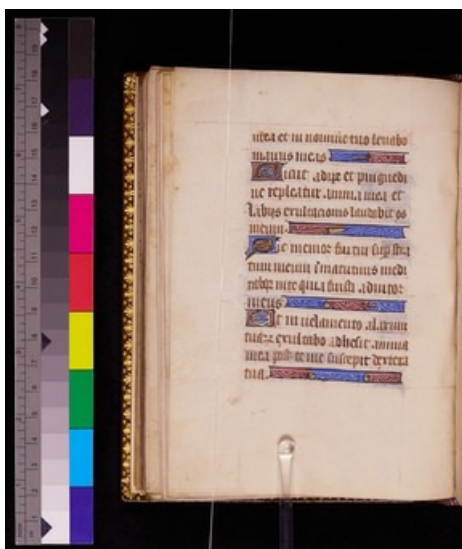 mea et in nomine tuo levabo
manus meas
Sicut adipe et pinguedi
ne repleatur anima mea et
labiis exultationis laudabit os
meum
Sic memor fui tui sup stra
tum meum i matutinis medi
tabor in te quia fuisti adiutor
meus
Et in velamento alarum
tuarz exultabo adhesit anima
mea post te me suscepit dextera
tua